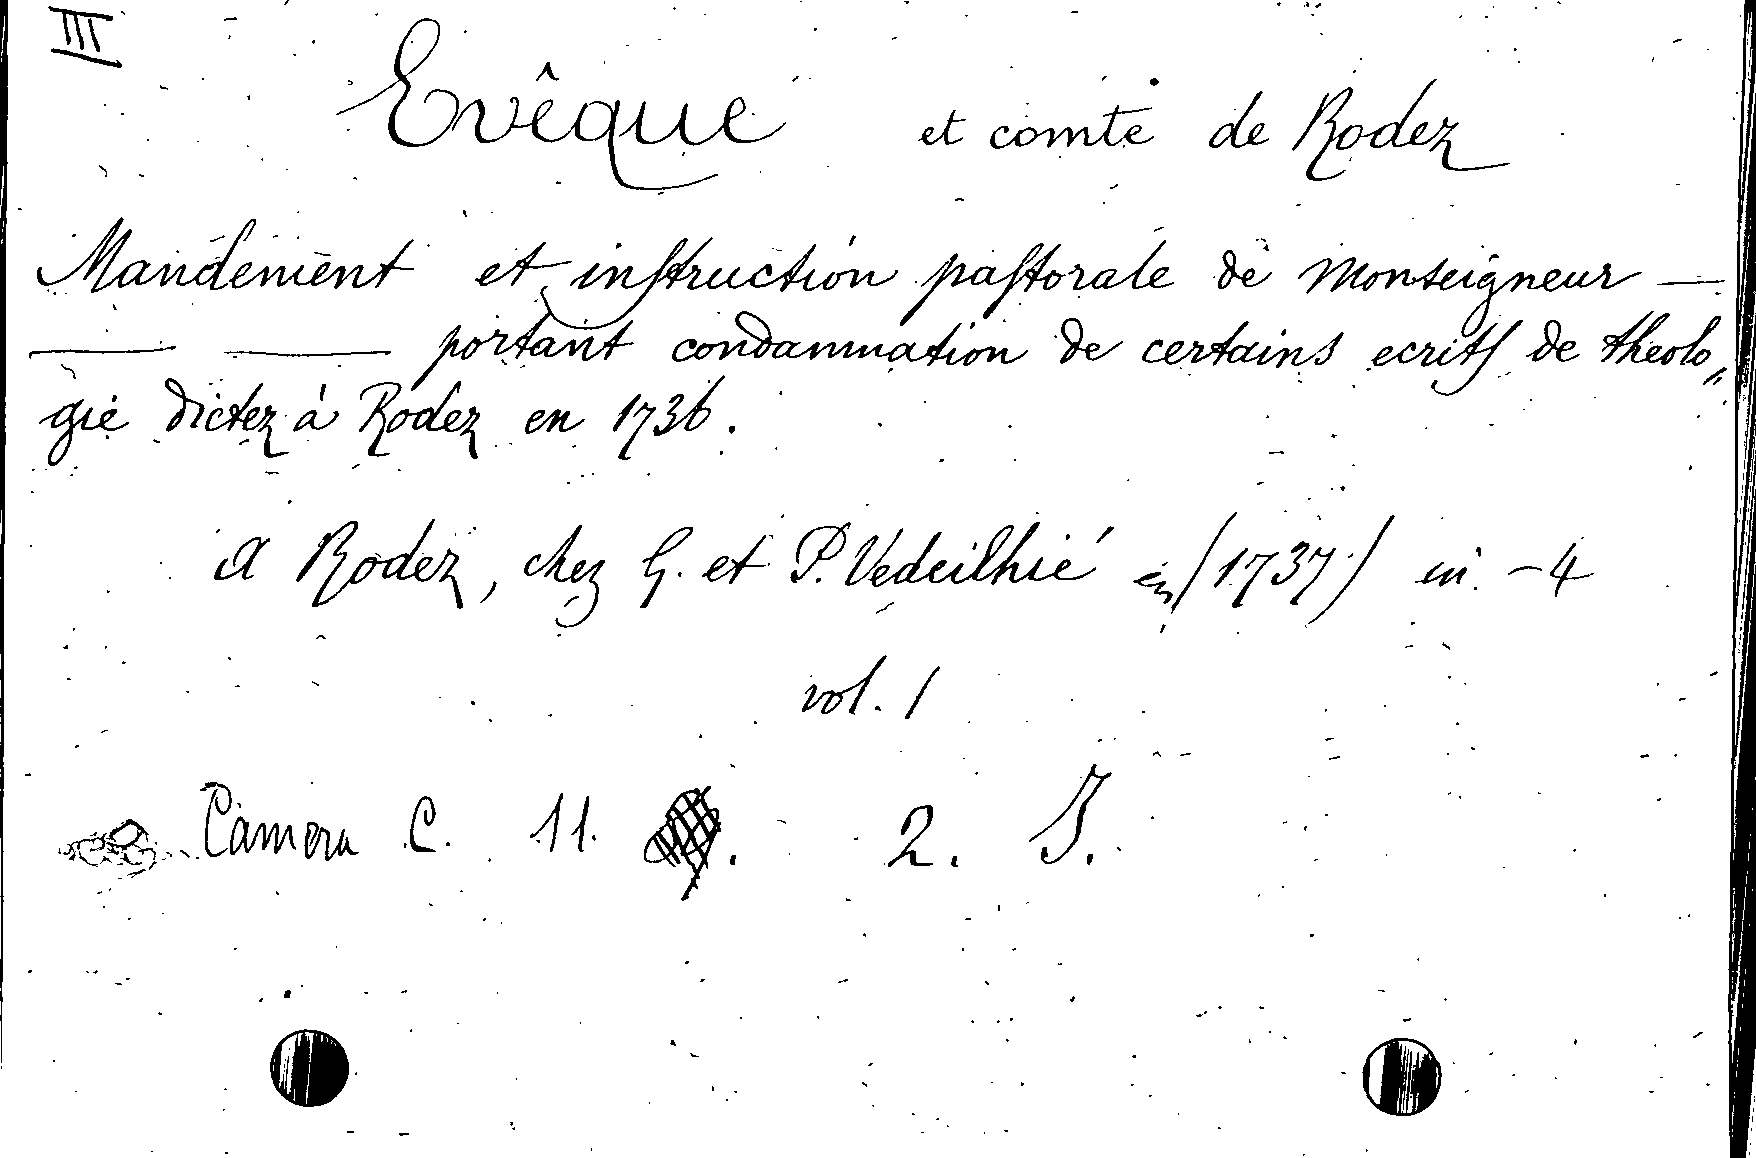 III
Evêque et comte de Rodez
Mandement et inſtruction paſtorale de Monseigneur —
— — portant condamnation de certains ecritſ de theolo„
gie dictez à Rodez en 1736.
A Rodez, chez G. et P. Vedeilhié en (1737) in -4
vol. 1
Camera C. 11. 2. J.